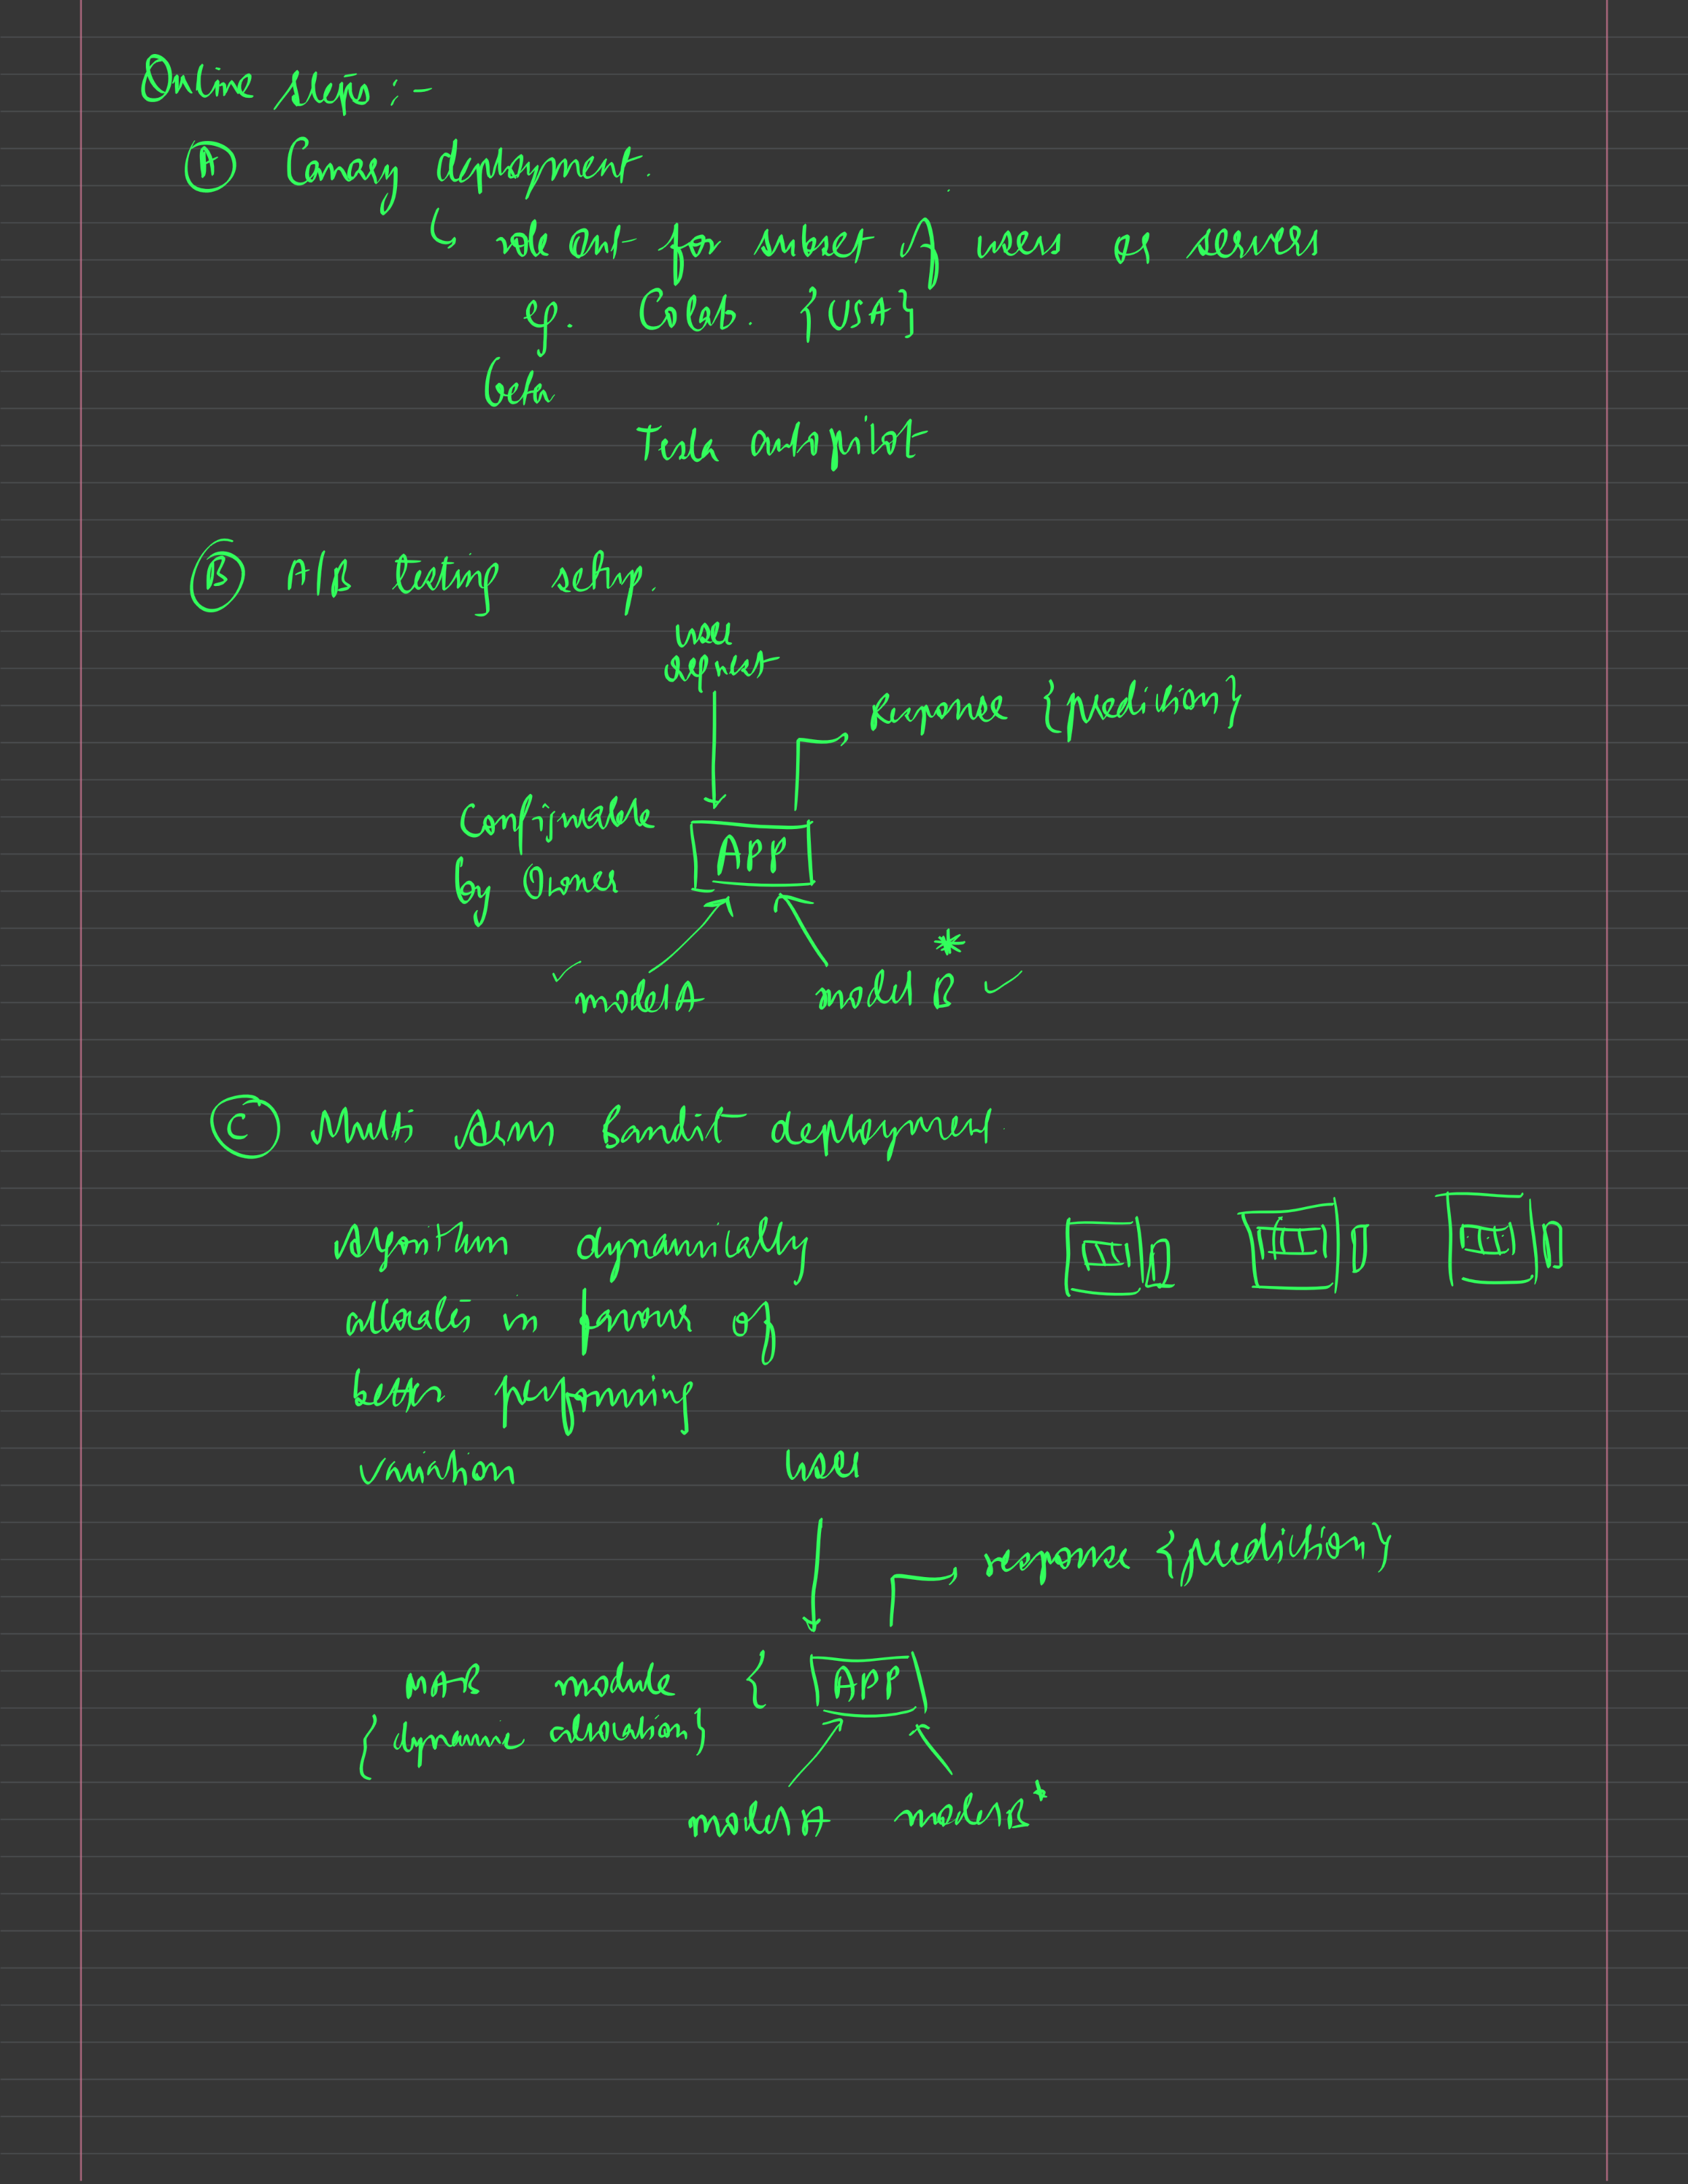 Online steps :-
(A) Canary deployment.
role out for subset of users or servers
eg. Colab. {USA}
Beta
Tesla autopilot
(B) A/B testing setup.
user
request
Response {prediction}
Configurable
by Owner
APP
*
✓ model A model B ✓
(C) Multi Arm Bandit deployment.
Algorithm dynamically
allocates in favour of
better performing
variation
user
response {prediction}
MAB module { APP
{dynamic allocation}
model A model B*